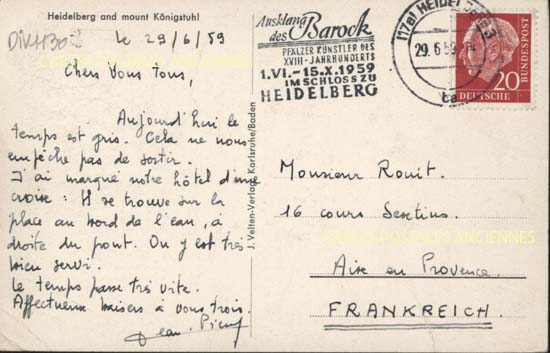 Heidelberg and mount Königstuhl
DIV4130
le 29/6/59
Chers Vous Tous,
Aujourd'hui le
temps est gris. Cela ne nous
empêche pas de sortir.
J'ai marqué notre hôtel d'une
croix : Il se trouve sur la
place au bord de l'eau, à
droite du pont. On y est très
bien servi.
Le temps passe très vite.
Affectueux baisers à vous trois.
Jean-Pierre
J. Velten-Verlag Karlsruhe/Baden
Ausklang
des Barock
PFÄLZER KÜNSTLER DES
XVIII. JAHRHUNDERTS
1.VI.-15.X.1959
IM SCHLOSS ZU
HEIDELBERG
(17a) HEIDELBERG 3
29.6.59
20
DEUTSCHE
BUNDESPOST
Monsieur Rouit.
16 cours Sextius.
CARTES POSTALES ANCIENNES
Aix en Provence.
FRANKREICH.